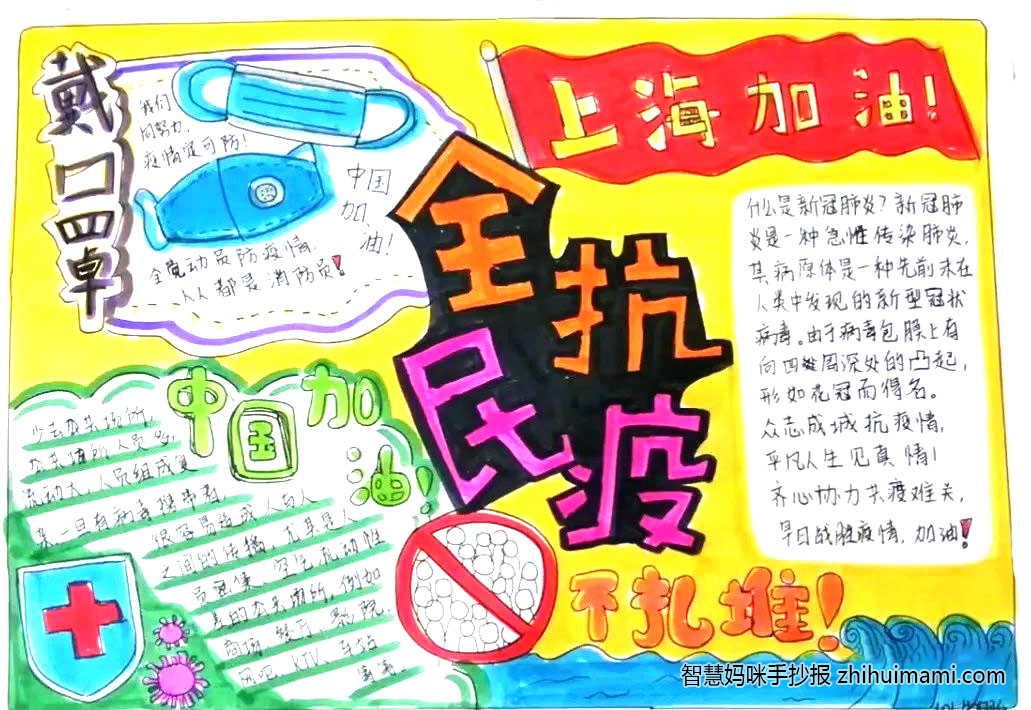 戴口罩
我们
同努力,
疫情定可防!
中国
加
油!
全员动员防疫情,
人人都是消防员!
上海加油!
全民抗疫
什么是新冠肺炎?新冠肺
炎是一种急性传染肺炎,
其病原体是一种先前未在
人类中发现的新型冠状
病毒。由于病毒包膜上有
向四周深处的凸起,
形如花冠而得名。
众志成城抗疫情,
平凡人生见真情!
齐心协力共疫难关,
早日战胜疫情,加油!
中国加油!
少去公共场所,
公共场所人员多,
流动大,人员组成复
某一旦有病毒携带者,
很容易造成人与人
之间的传播,尤其是人
员密集、空气流动性
差的公共场所,例如
商场、餐厅、影院、
网吧、KTV、车站
不扎堆!
智慧妈咪手抄报 zhihuimami.com